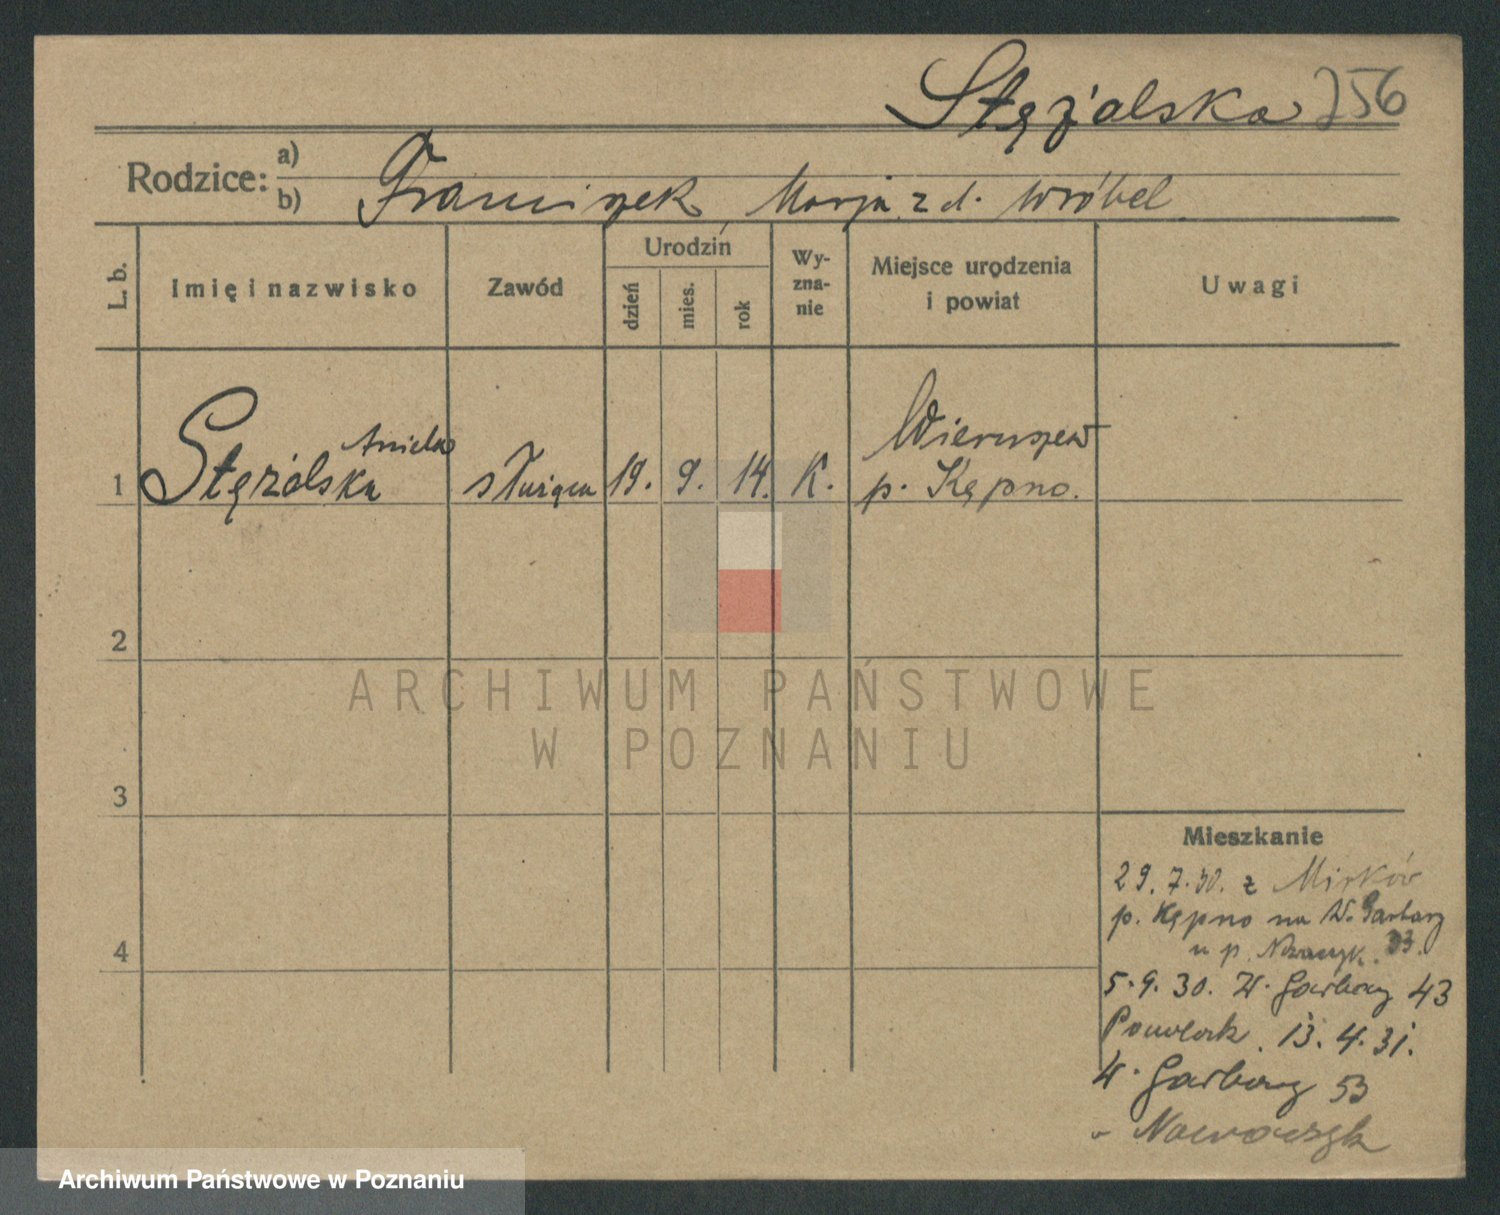 Stężalska 756
Rodzice: a)
b) Franciszek, Marja z d. Wróbel
L. b.
Imię i nazwisko
Zawód
Urodziń
dzień
mies.
rok
Wy-
zna-
nie
Miejsce urodzenia
i powiat
Uwagi
Aniela
1 Stężalska służąca 19. 9. 14. K. Wieruszew
p. Kępno.
2
3
4
ARCHIWUM PAŃSTWOWE
W POZNANIU
Mieszkanie
29. 7. 30. z Mirków
p. Kępno na W. Garbary
u p. 33.
5. 9. 30. W. Garbary 43
13. 4. 31.
W. Garbary 53
Nowaczyk
Archiwum Państwowe w Poznaniu